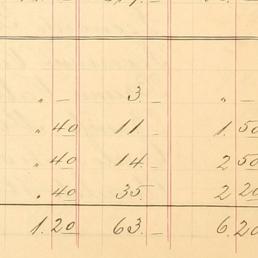 " — 3. — " —
" 40 11 — 1. 50
" 40 14. — 2 50
" 40 35. — 2 20
1. 20 63. — 6. 20